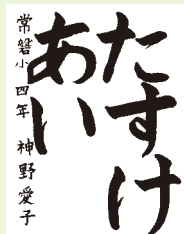 たすけ
あい
常磐小 四年 神野愛子